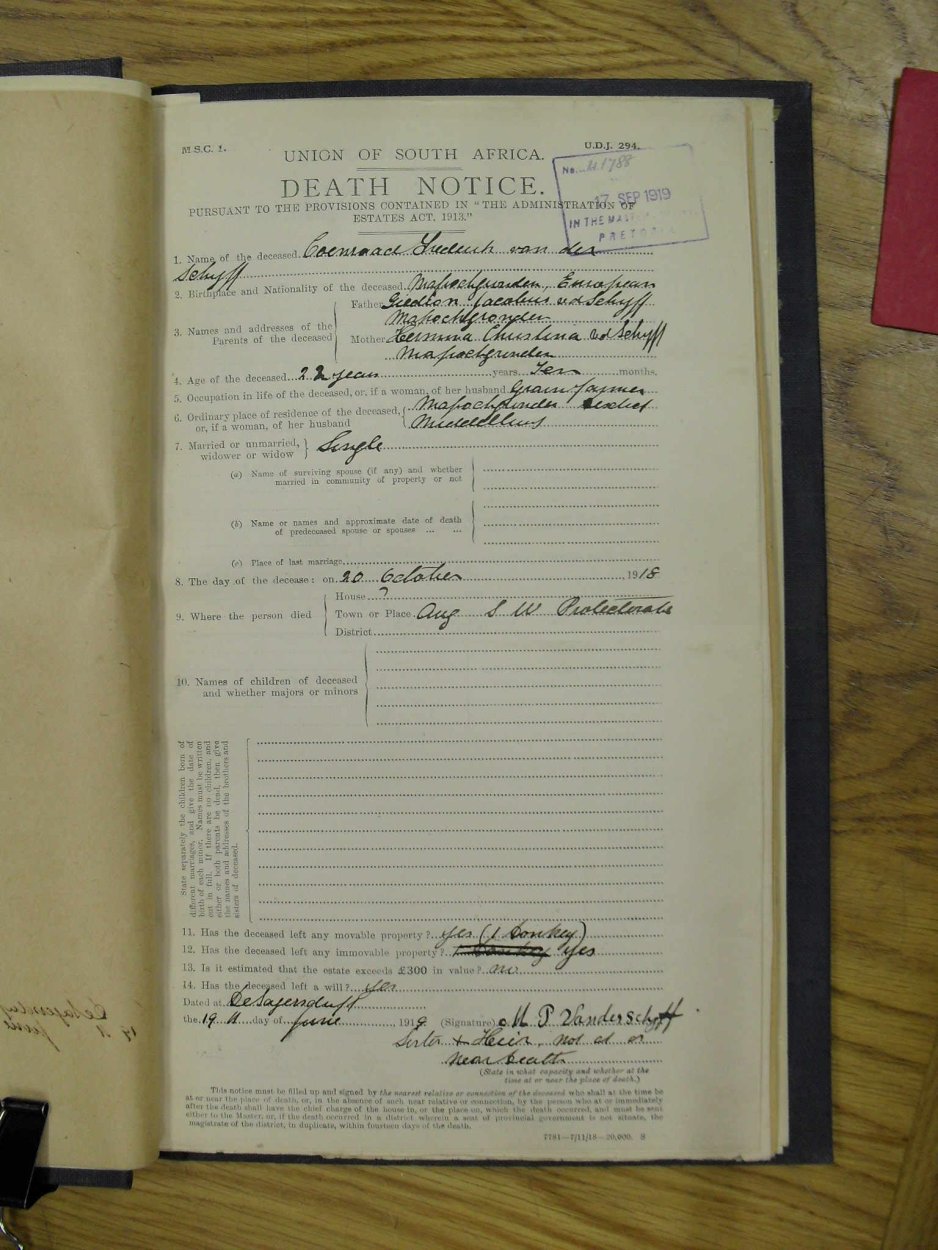 M.S.C. 1.
U.D.J. 294.
UNION OF SOUTH AFRICA.
No. 41788
DEATH NOTICE.
17 SEP 1919
PURSUANT TO THE PROVISIONS CONTAINED IN "THE ADMINISTRATION OF
ESTATES ACT, 1913."
IN THE MASTER
PRETORIA
1. Name of the deceased Coenraad Frederik van der
Schyff
2. Birthplace and Nationality of the deceased Mapochgronden, European
3. Names and addresses of the Parents of the deceased
Father Giedion Jacobus v d Schyff
Mapochgronden
Mother Hermina Christina v d Schyff
Mapochgronden
4. Age of the deceased 22 years years Ten months.
5. Occupation in life of the deceased, or, if a woman, of her husband Grain farmer
6. Ordinary place of residence of the deceased, Mapochgronden District
or, if a woman, of her husband Middelburg
7. Married or unmarried, widower or widow Single
(a) Name of surviving spouse (if any) and whether
married in community of property or not
(b) Name or names and approximate date of death
of predeceased spouse or spouses ... ...
(c) Place of last marriage
8. The day of the decease: on 20 October 1918
9. Where the person died
House ?
Town or Place Aug S W Protectorate
District
10. Names of children of deceased
and whether majors or minors
State separately the children born of
different marriages, and give the date of
birth of each minor. Names must be written
out in full. If there are no children, and
either or both parents be dead, then give
the names and addresses of the brothers and
sisters of deceased.
11. Has the deceased left any movable property? yes (1 Donkey)
12. Has the deceased left any immovable property? yes
13. Is it estimated that the estate exceeds £300 in value? no
14. Has the deceased left a will? yes
Dated at De Lagersdrift
the 19 day of June 1919 (Signature) M P Vanderschyff
Sister & Heir, not at or
near death
(State in what capacity and whether at the
time at or near the place of death.)
This notice must be filled up and signed by the nearest relative or connection of the deceased who shall at the time be
at or near the place of death, or, in the absence of such near relative or connection, by the person who at or immediately
after the death shall have the chief charge of the house in, or the place on, which the death occurred, and must be sent
either to the Master, or, if the death occurred in a district wherein a seat of provincial government is not situate, the
magistrate of the district, in duplicate, within fourteen days of the death.
7781—7/11/18—20,000. S